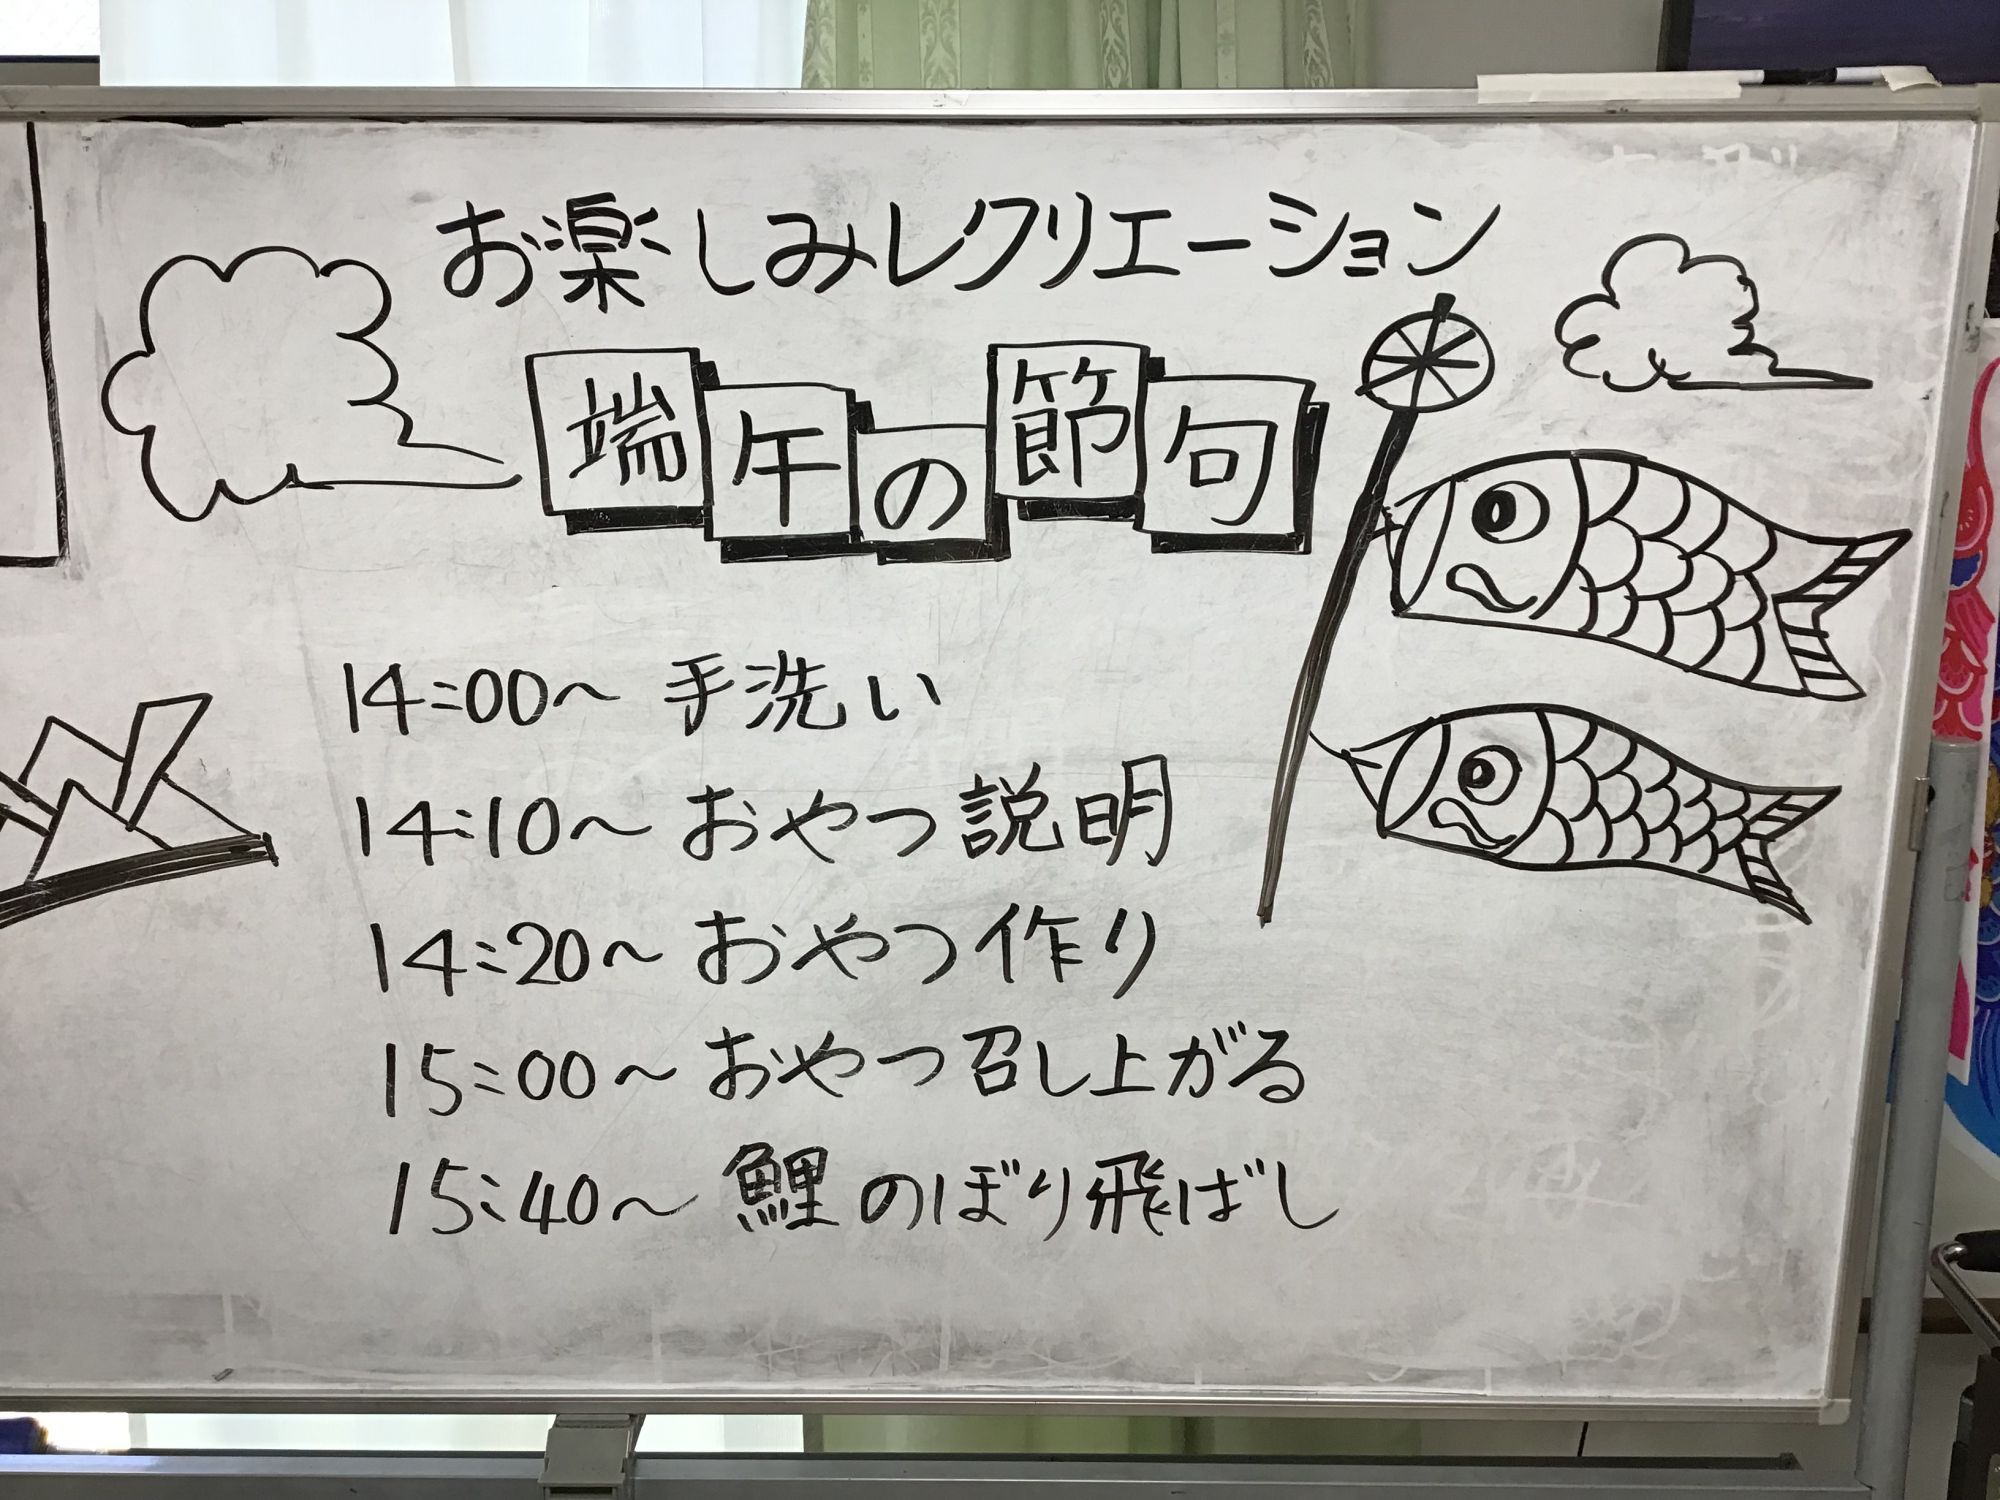 お楽しみレクリエーション
端午の節句
14:00〜 手洗い
14:10〜 おやつ説明
14:20〜 おやつ作り
15:00〜 おやつ召し上がる
15:40〜 鯉のぼり飛ばし